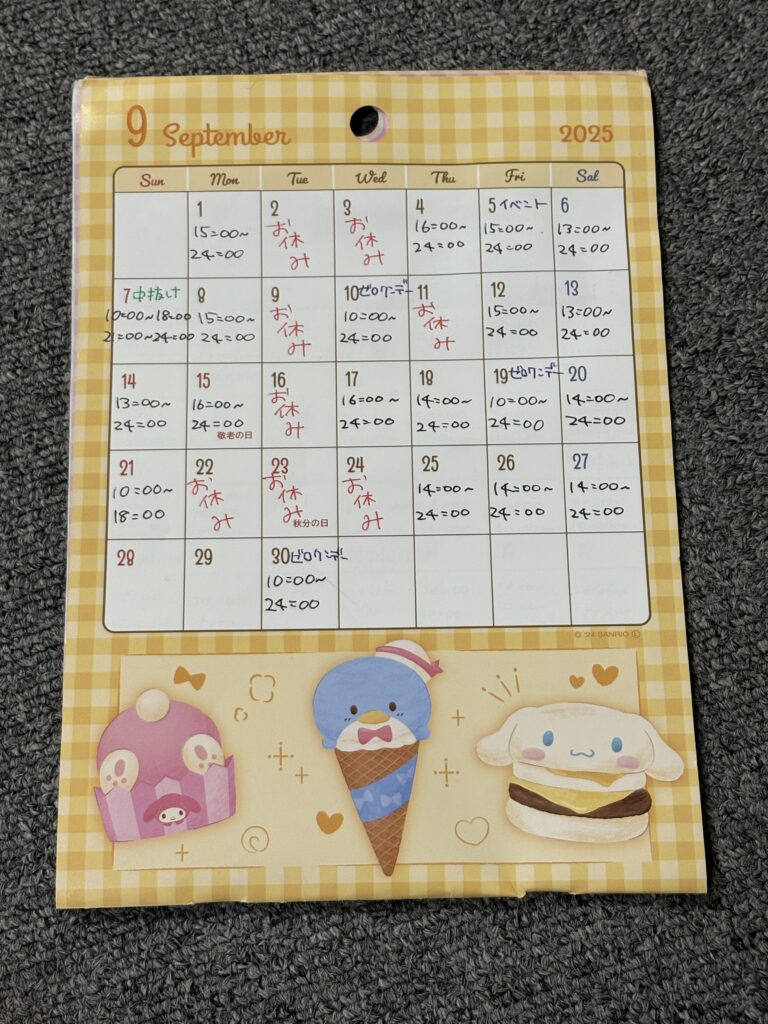 9 September 2025
Sun Mon Tue Wed Thu Fri Sat
1
15:00~
24:00
2
お
休
み
3
お
休
み
4
16:00~
24:00
5 イベント
15:00~
24:00
6
13:00~
24:00
7 中抜け
10:00~18:00
21:00~24:00
8
15:00~
24:00
9
お
休
み
10 ゼロワンデー
10:00~
24:00
11
お
休
み
12
15:00~
24:00
13
13:00~
24:00
14
13:00~
24:00
15
16:00~
24:00
敬老の日
16
お
休
み
17
16:00~
24:00
18
14:00~
24:00
19 ゼロワンデー
10:00~
24:00
20
14:00~
24:00
21
10:00~
18:00
22
お
休
み
23
お
休
み
秋分の日
24
お
休
み
25
14:00~
24:00
26
14:00~
24:00
27
14:00~
24:00
28
29
30 ゼロワンデー
10:00~
24:00
© '24 SANRIO Ⓛ